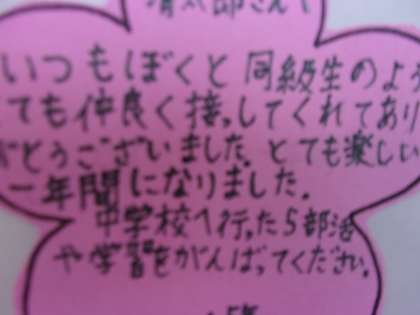 清太郎さんへ
いつもぼくと同級生のよう
ても仲良く接してくれてあり
がとうございました。とても楽しい
一年間になりました。
中学校へ行ったら部活
や学習をがんばってください。